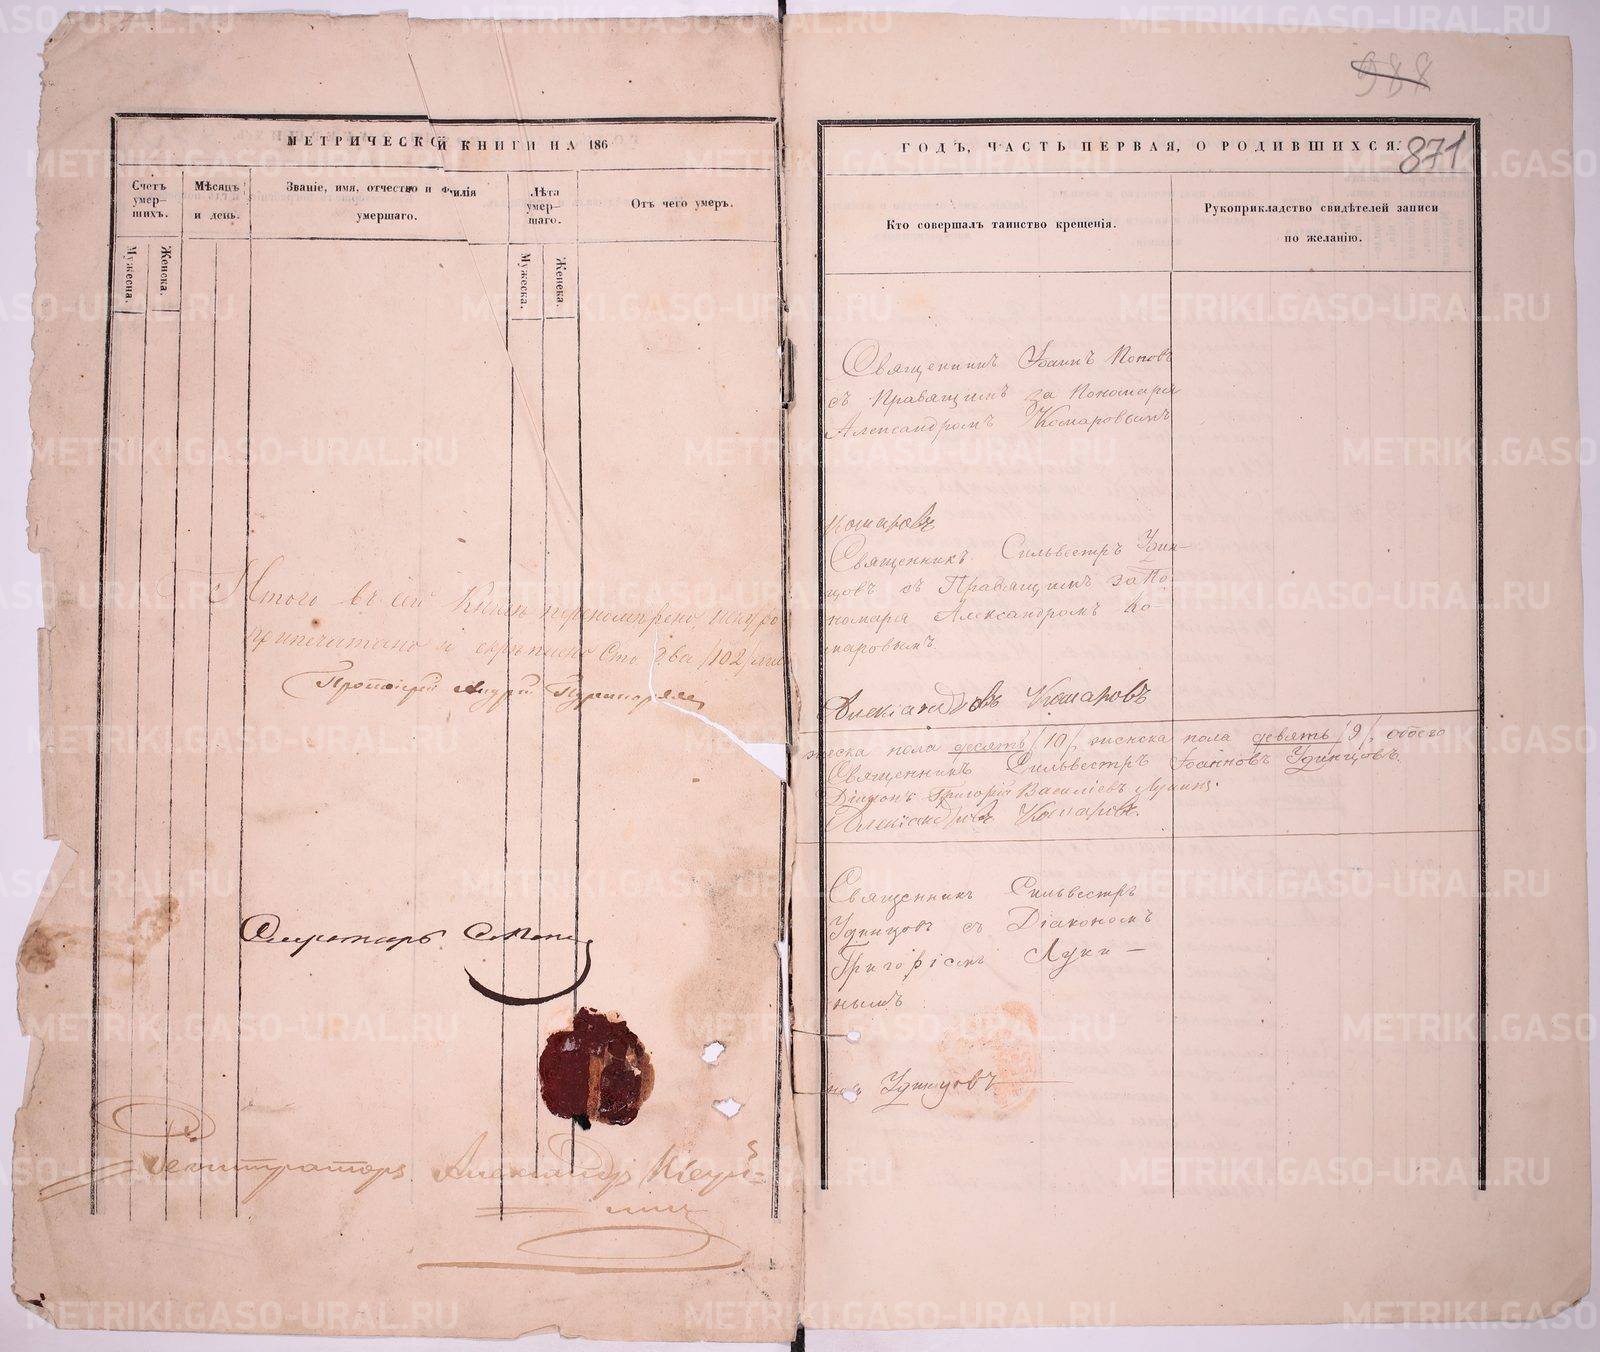 МЕТРИЧЕСКОЙ КНИГИ НА 186
Счетъ умер-шихъ.
Мѣсяцъ и день.
Званіе, имя, отчество и Фамилія умершаго.
Лѣта умер-шаго.
Отъ чего умеръ.
Мужеска.
Женска.
Мужеска.
Женска.
Итого въ сей Книгѣ перенумеровано, шнуро
припечатано и скрѣплено Сто два /102/ лис
Протоіерей Андрей
Секретарь Попов
Регистраторъ Александръ
988
871
ГОДЪ, ЧАСТЬ ПЕРВАЯ, О РОДИВШИХСЯ.
Кто совершалъ таинство крещенія.
Рукоприкладство свидѣтелей записи по желанію.
Священникъ Іоаннъ Поповъ
съ Правящимъ за Пономаря
Александромъ Комаровымъ
Комаровъ
Священникъ Сильвестръ Удин-
цовъ съ Правящимъ за По-
номаря Александромъ Ко-
маровымъ
Александровъ Комаровъ
жеска пола десять /10/, женска пола девять /9/, обоего
Священникъ Сильвестръ Іоанновъ Удинцовъ.
Діаконъ Григорій Василіевъ Лукинъ.
Александровъ Комаровъ.
Священникъ Сильвестръ
Удинцовъ съ Діакономъ
Григоріемъ Луки-
нымъ
Удинцовъ
METRIKI.GASO-URAL.RU